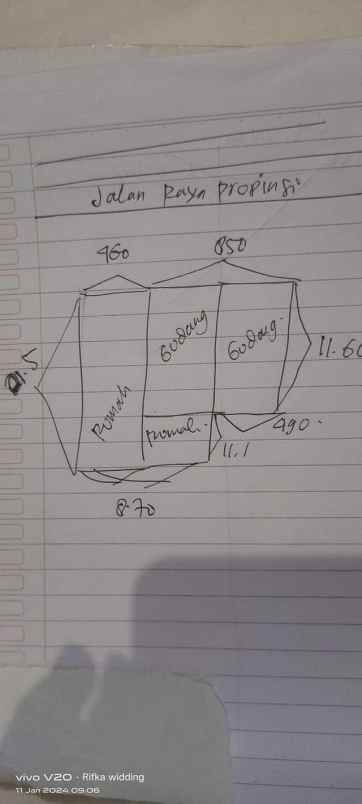 Jalan Raya propinsi
460
850
Gudang
Gudang.
11.60
Rumah
Rumah.
490.
11.1
8.70
vivo V20 · Rifka widding
11 Jan 2024 09.06